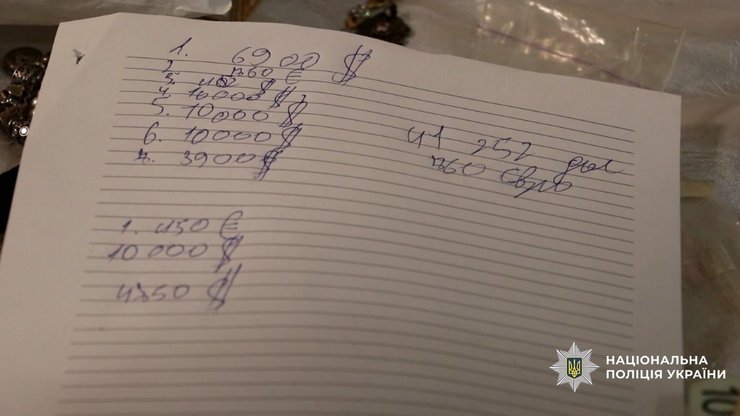 1. 6900 $
2. 760 €
3. 402 $
4. 10000 $
5. 10000 $
6. 10000 $
7. 3900 $
41 252 дол
760 Євро
1. 450 €
10000 $
4350 $
НАЦІОНАЛЬНА
ПОЛІЦІЯ УКРАЇНИ
10